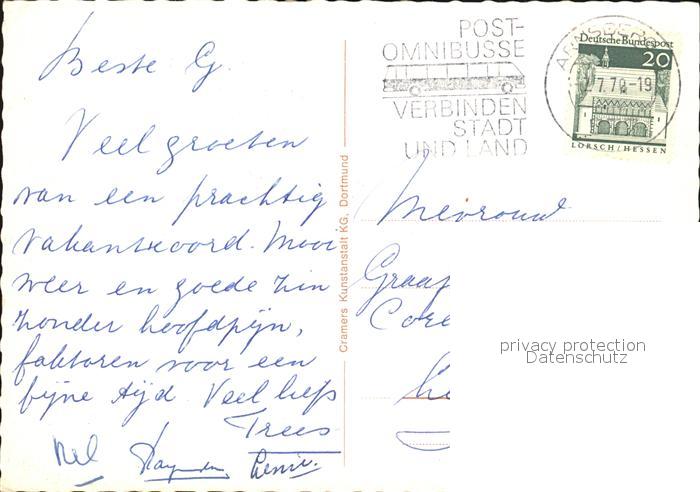 Beste G.
Veel groeten
van een prachtig
vakantieoord. Mooi
weer en goede zin
zonder hoofdpijn,
faktoren voor een
fijne tijd Veel liefs
Trees
Nel
Cramers Kunstanstalt KG, Dortmund
POST-
OMNIBUSSE
VERBINDEN
STADT
UND LAND
Deutsche Bundespost
20
7.70-19
LORSCH/HESSEN
Mevrouw
privacy protection
Datenschutz